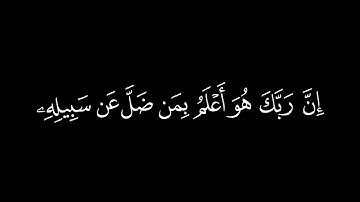 إِنَّ رَبَّكَ هُوَ أَعْلَمُ بِمَن ضَلَّ عَن سَبِيلِهِۦ